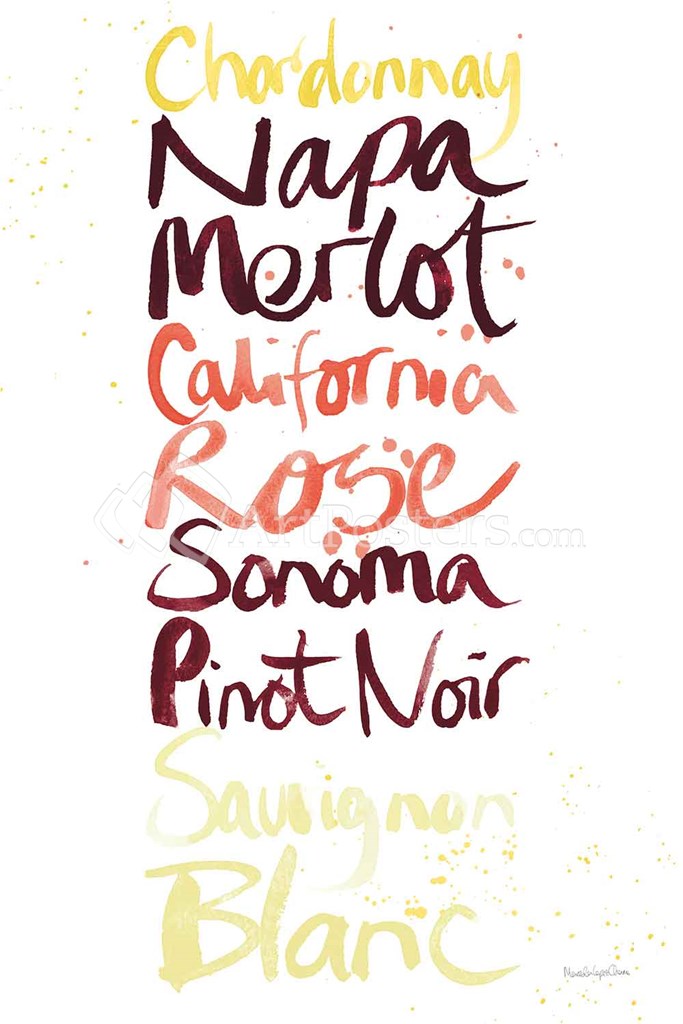 Chardonnay
Napa
Merlot
California
Rose
ArtPosters.com
Sonoma
Pinot Noir
Sauvignon
Blanc